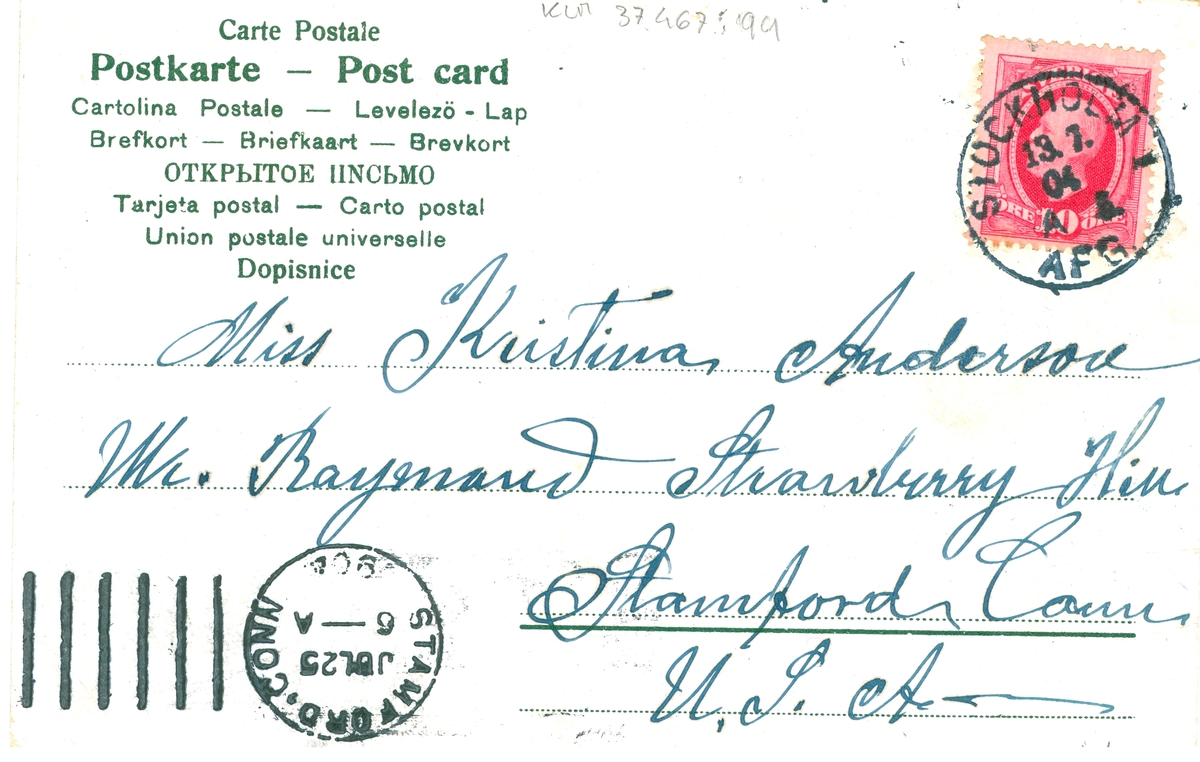 KLM 37.467:99
Carte Postale
Postkarte — Post card
Cartolina Postale — Levelezö - Lap
Brefkort — Briefkaart — Brevkort
ОТКРЫТОЕ ПИСЬМО
Tarjeta postal — Carto postal
Union postale universelle
Dopisnice
STOCKHOLM 1
13. 7.
04
A
AFG.
ÖRE 10 ÖRE
Miss Kristina Anderson
Mr. Raymand Strawberry Hill
Stamford Conn
U. S. A.
STAMFORD, CONN
JUL 25
6 — A